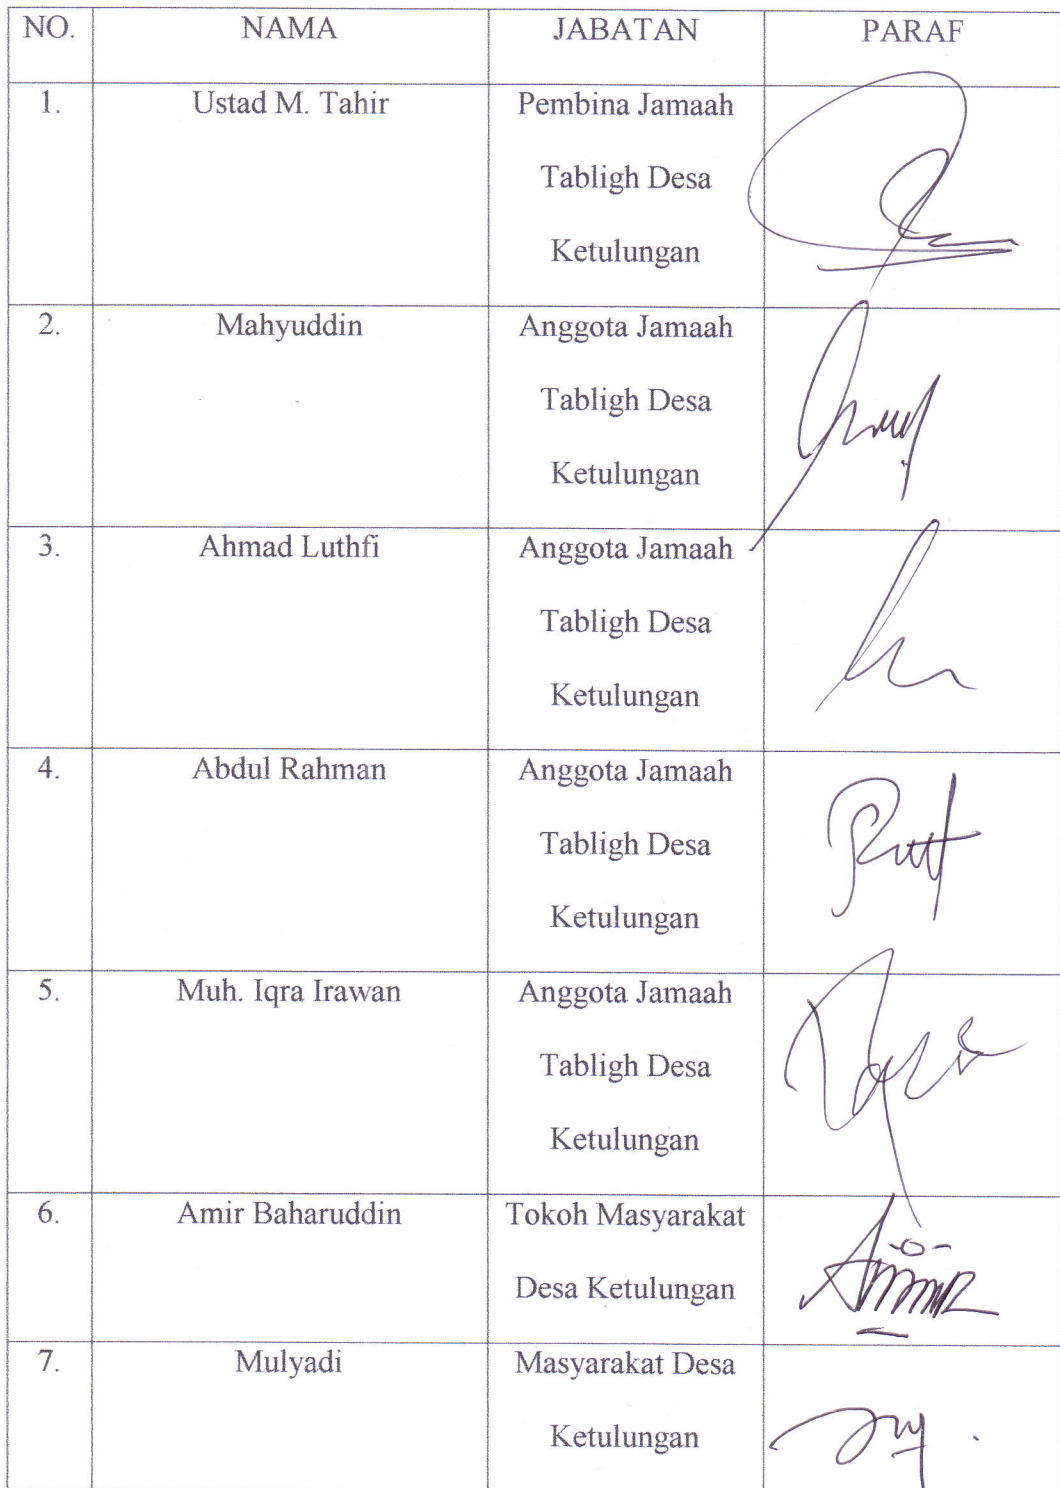 NO. NAMA JABATAN PARAF
1. Ustad M. Tahir Pembina Jamaah
Tabligh Desa
Ketulungan
2. Mahyuddin Anggota Jamaah
Tabligh Desa
Ketulungan
3. Ahmad Luthfi Anggota Jamaah
Tabligh Desa
Ketulungan
4. Abdul Rahman Anggota Jamaah
Tabligh Desa
Ketulungan
5. Muh. Iqra Irawan Anggota Jamaah
Tabligh Desa
Ketulungan
6. Amir Baharuddin Tokoh Masyarakat
Desa Ketulungan
7. Mulyadi Masyarakat Desa
Ketulungan